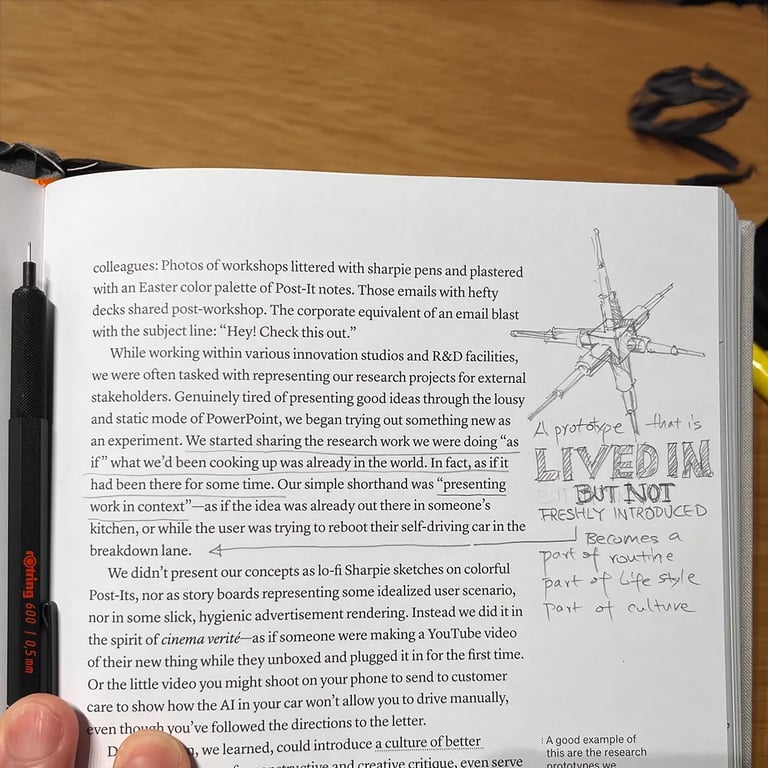 colleagues: Photos of workshops littered with sharpie pens and plastered
with an Easter color palette of Post-It notes. Those emails with hefty
decks shared post-workshop. The corporate equivalent of an email blast
with the subject line: “Hey! Check this out.”
While working within various innovation studios and R&D facilities,
we were often tasked with representing our research projects for external
stakeholders. Genuinely tired of presenting good ideas through the lousy
and static mode of PowerPoint, we began trying out something new as
an experiment. We started sharing the research work we were doing “as
if” what we’d been cooking up was already in the world. In fact, as if it
had been there for some time. Our simple shorthand was “presenting
work in context”—as if the idea was already out there in someone’s
kitchen, or while the user was trying to reboot their self-driving car in the
breakdown lane.
We didn’t present our concepts as lo-fi Sharpie sketches on colorful
Post-Its, nor as story boards representing some idealized user scenario,
nor in some slick, hygienic advertisement rendering. Instead we did it in
the spirit of cinema verité—as if someone were making a YouTube video
of their new thing while they unboxed and plugged it in for the first time.
Or the little video you might shoot on your phone to send to customer
care to show how the AI in your car won’t allow you to drive manually,
even though you’ve followed the directions to the letter.
we learned, could introduce a culture of better
and creative critique, even serve
A prototype that is
LIVED IN
BUT NOT
FRESHLY INTRODUCED
Becomes a
part of routine
part of life style
part of culture
A good example of
this are the research
prototypes we
rotring 600 | 0,5mm